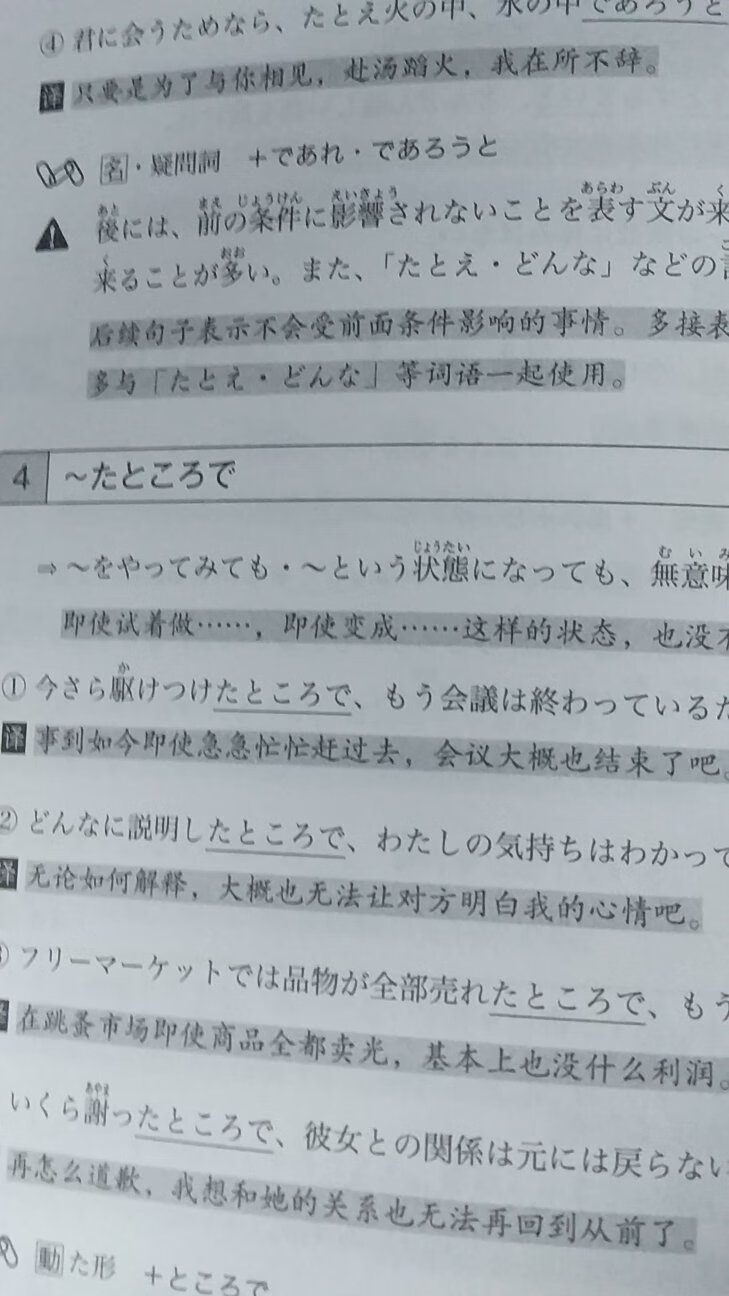 ④ 君に会うためなら、たとえ火の中、水の中であろうと
译 只要是为了与你相见，赴汤蹈火，我在所不辞。
名・疑問詞 ＋であれ・であろうと
あと まえ じょうけん えいきょう あらわ ぶん く
後には、前の条件に影響されないことを表す文が来
く おお
来ることが多い。また、「たとえ・どんな」などの
后续句子表示不会受前面条件影响的事情。多接表
多与「たとえ・どんな」等词语一起使用。
4 ～たところで
じょうたい む い み
⇒ ～をやってみても・～という状態になっても、無意味
即使试着做……，即使变成……这样的状态，也没
か
① 今さら駆けつけたところで、もう会議は終わっている
译 事到如今即使急急忙忙赶过去，会议大概也结束了吧。
② どんなに説明したところで、わたしの気持ちはわかって
译 无论如何解释，大概也无法让对方明白我的心情吧。
フリーマーケットでは品物が全部売れたところで、もう
在跳蚤市场即使商品全都卖光，基本上也没什么利润。
あやま
いくら謝ったところで、彼女との関係は元には戻らない
再怎么道歉，我想和她的关系也无法再回到从前了。
動た形 ＋ところで